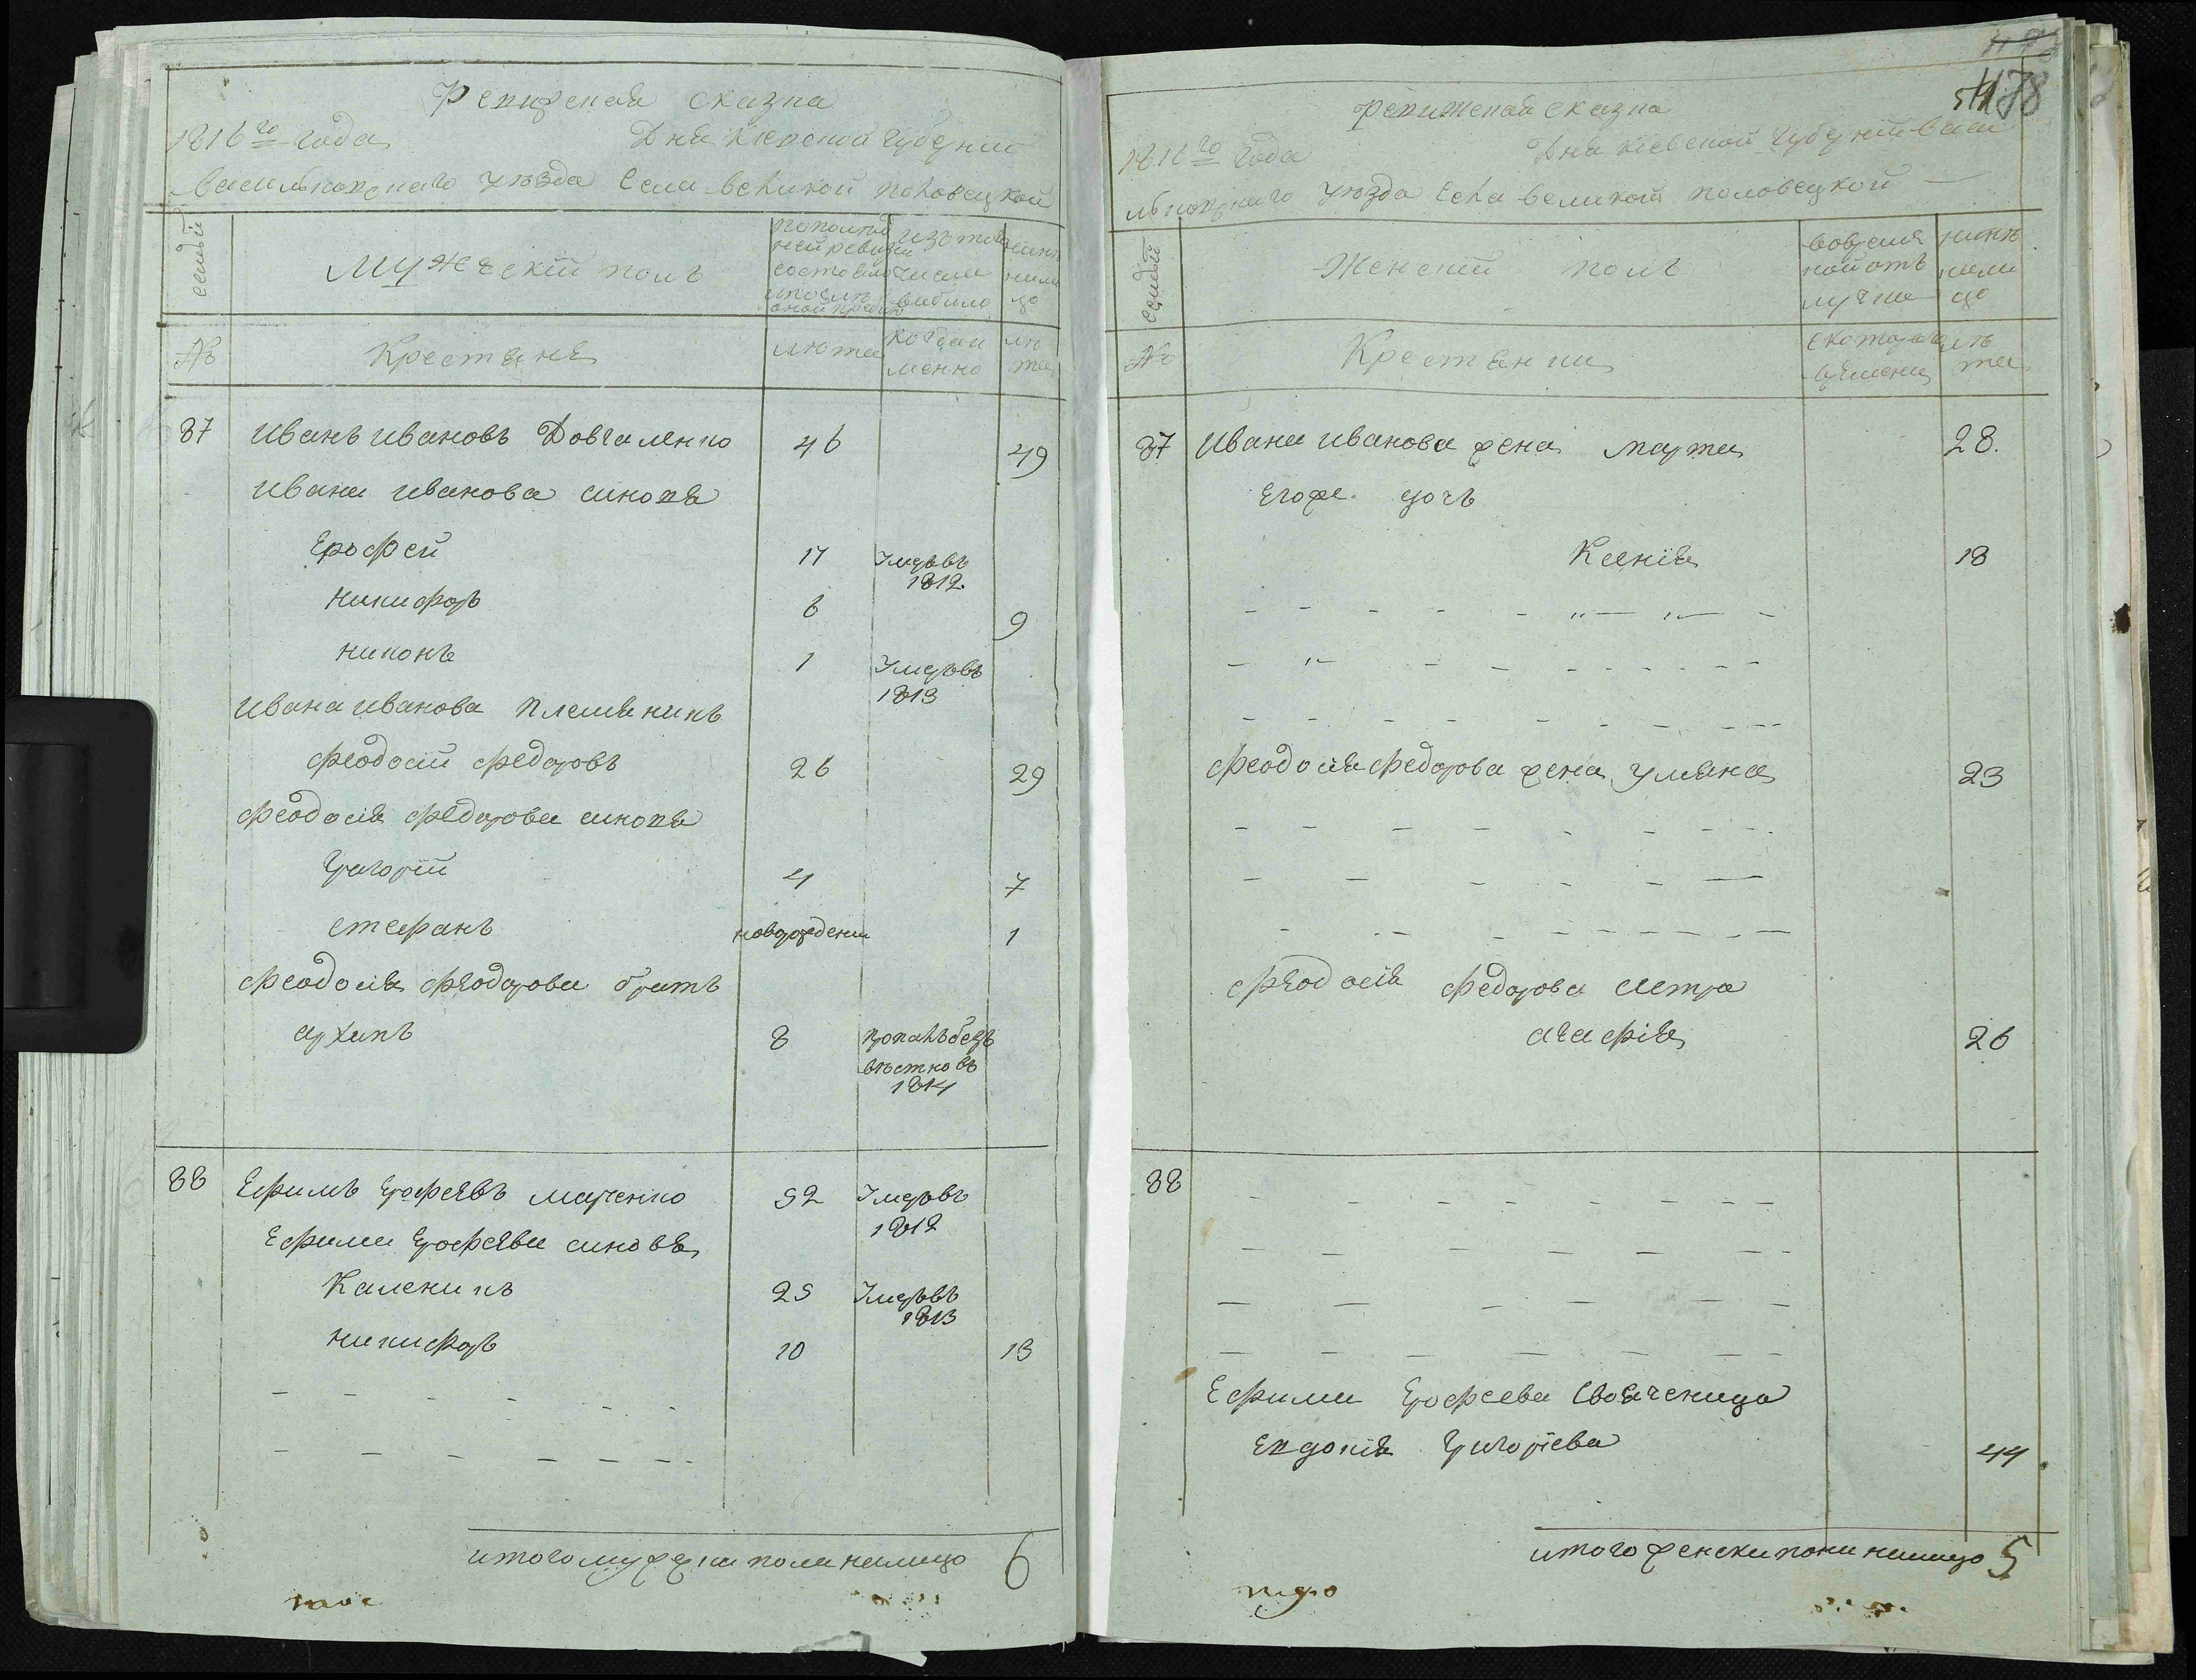 Ревизская сказка
1816го года Дня Киевской Губернии
Васильковскаго уезда Села великой половецкой
семьи
Мужескій полъ
по последней ревизіи состояло и после оной прибыло
изъ того числа выбыло
ныне на лицо
№
Крестьяне
лета
когда именно
лета
87 Иванъ Ивановъ Довгаленко 46 49
Ивана Иванова синовя
Ерофей 17 Умеръ въ 1812.
Никифоръ 6 9
Никонъ 1 Умеръ въ 1813
Ивана Иванова племяникъ
Феодосій Федоровъ 26 29
Феодосія Федорова синовя
Григорій 4 7
Стефанъ новорожденни 1
Феодосія Феодорова братъ
Архипъ 8 пропалъ безъ вѣстно въ 1814
88 Ефимъ Ерофеевъ Марченко 52 Умеръ въ 1812
Ефима Ерофеева синовя
Каленикъ 25 Умеръ въ 1813
Никифоръ 10 13
итого мужеска пола налицо 6
478
Ревижская сказка
1816го года Дня Кіевской Губерніи Васи
льковскаго уезда Села великой половецкой
семьи
Женскій полъ
во временной отлучке
ныне на лицо
№
Крестьянки
с котораго времени
лета
87 Ивана Иванова жена Марта 28.
Егоже дочь
Ксенія 18
Феодосія Федорова жена Уляна 23
Феодосія Федорова сестра
Агафія 26
88
Ефима Ерофеева своячница
Евдокія Григоріева 44
итого женска пола налицо 5